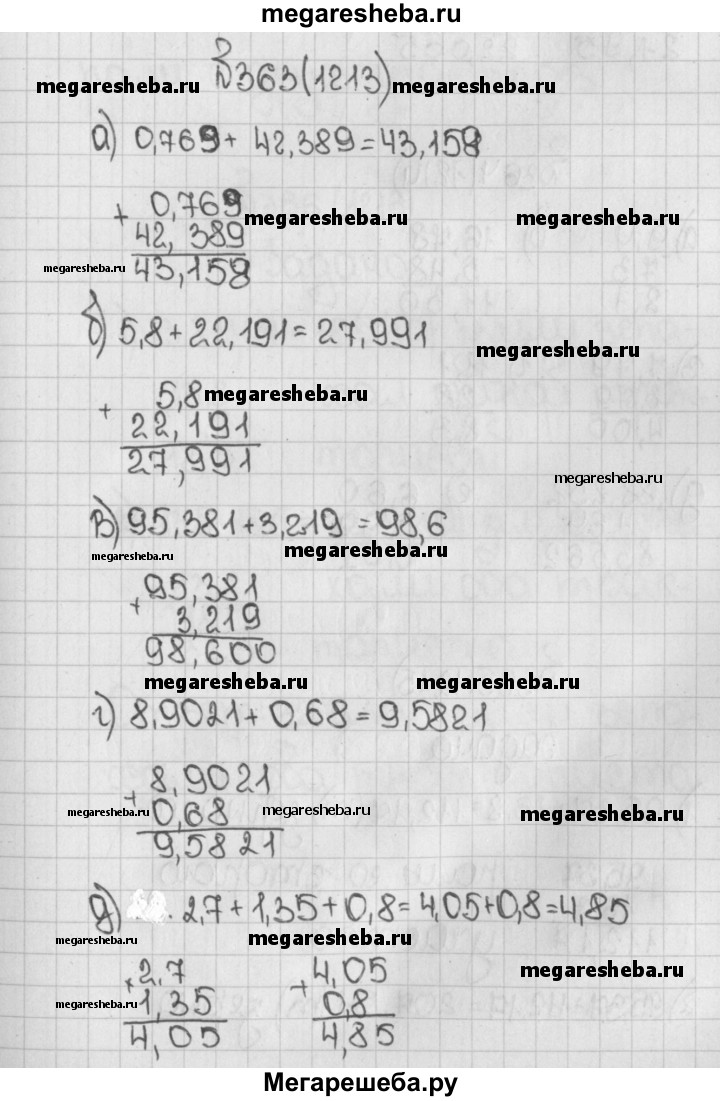 megaresheba.ru
№363(1213)
megaresheba.ru megaresheba.ru
а) 0,769 + 42,389 = 43,158
+ 0,769
megaresheba.ru megaresheba.ru
42,389
megaresheba.ru 43,158
б) 5,8 + 22,191 = 27,991
megaresheba.ru
+ 5,8 megaresheba.ru
22,191
27,991
megaresheba.ru
в) 95,381 + 3,219 = 98,6
megaresheba.ru megaresheba.ru
+ 95,381
3,219
98,600
megaresheba.ru megaresheba.ru
г) 8,9021 + 0,68 = 9,5821
+ 8,9021
megaresheba.ru 0,68 megaresheba.ru megaresheba.ru
9,5821
д) 2,7 + 1,35 + 0,8 = 4,05 + 0,8 = 4,85
megaresheba.ru megaresheba.ru
+ 2,7 + 4,05
megaresheba.ru
megaresheba.ru 1,35 0,8
4,05 4,85
Мегарешеба.ру